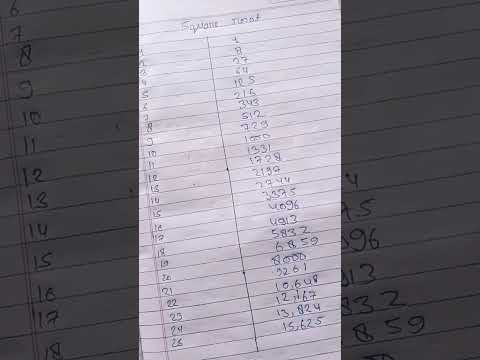 Square root
1 1
2 8
3 27
4 64
5 125
6 216
7 343
8 512
9 729
10 1000
11 1331
12 1728
13 2197
14 2744
15 3375
16 4096
17 4913
18 5832
19 6859
20 8000
21 9261
22 10,648
23 12,167
24 13,824
25 15,625
6
7
8
9
10
11
12
13
14
15
16
17
18
4
75
096
913
832
859